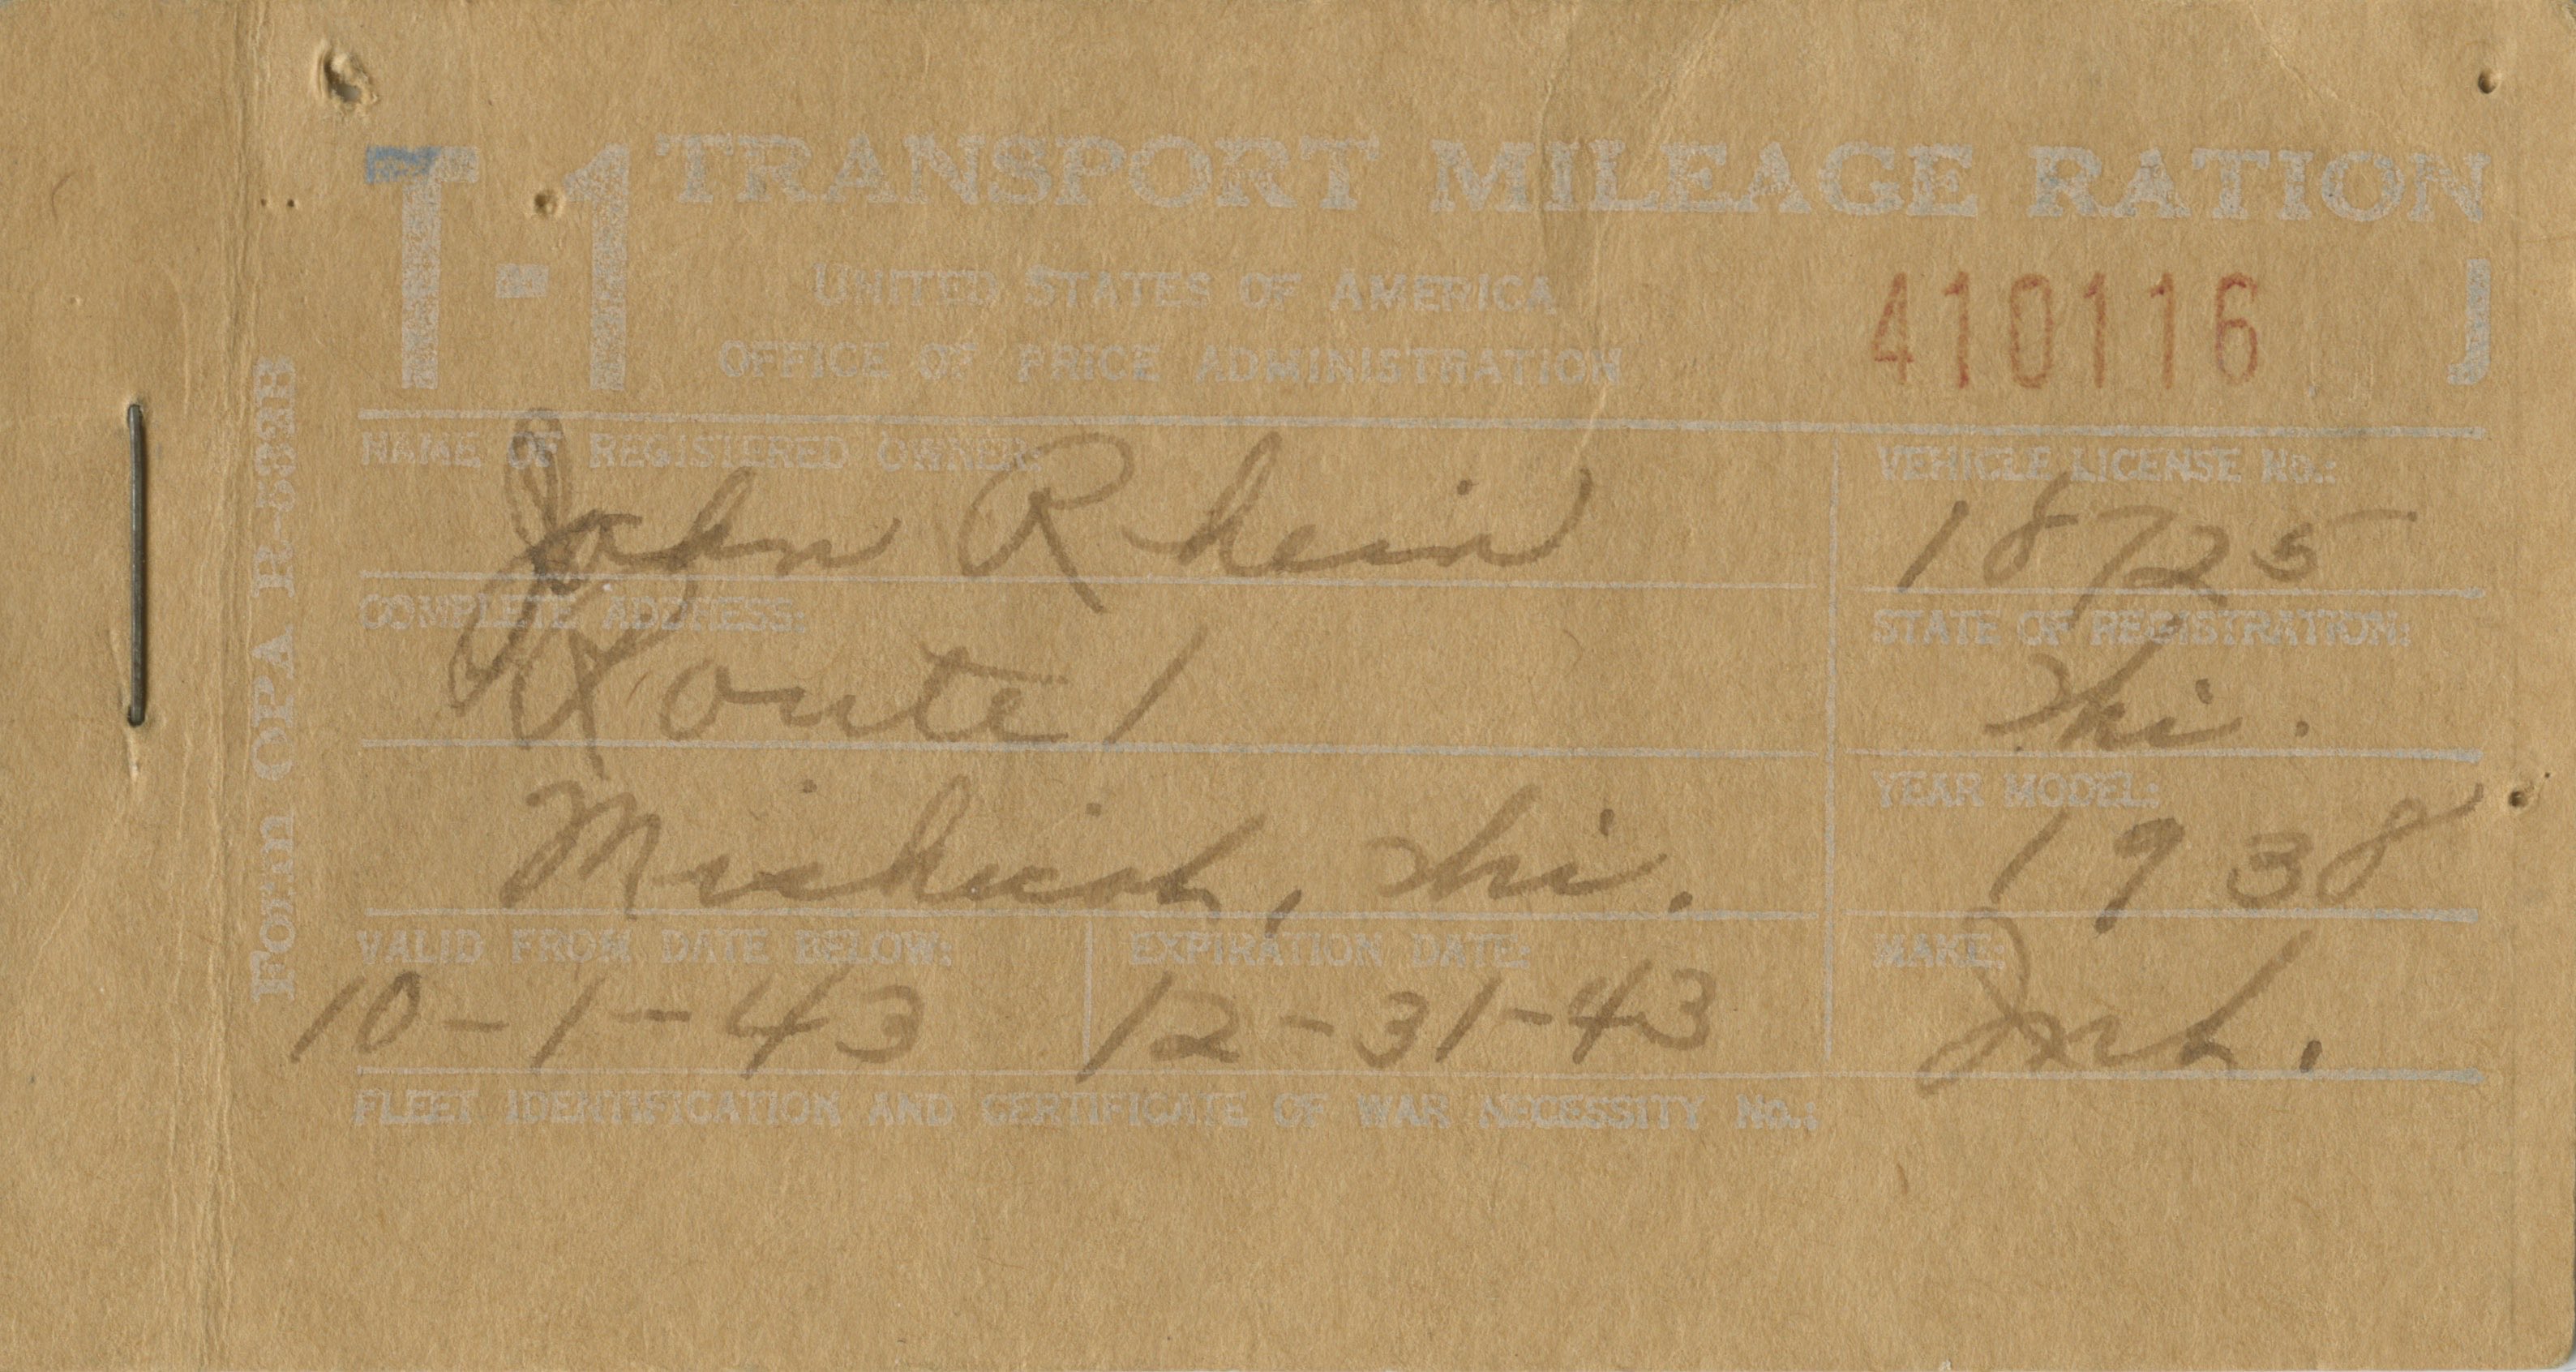 T-1 TRANSPORT MILEAGE RATION
UNITED STATES OF AMERICA
OFFICE OF PRICE ADMINISTRATION
410116 J
Form OPA R-532B
NAME OF REGISTERED OWNER:
John Rhein
VEHICLE LICENSE No.:
18725
COMPLETE ADDRESS:
Route 1
STATE OF REGISTRATION:
Wi.
Mishicot, Wi.
YEAR MODEL:
1938
VALID FROM DATE BELOW:
10-1-43
EXPIRATION DATE:
12-31-43
MAKE:
FLEET IDENTIFICATION AND CERTIFICATE OF WAR NECESSITY No.: